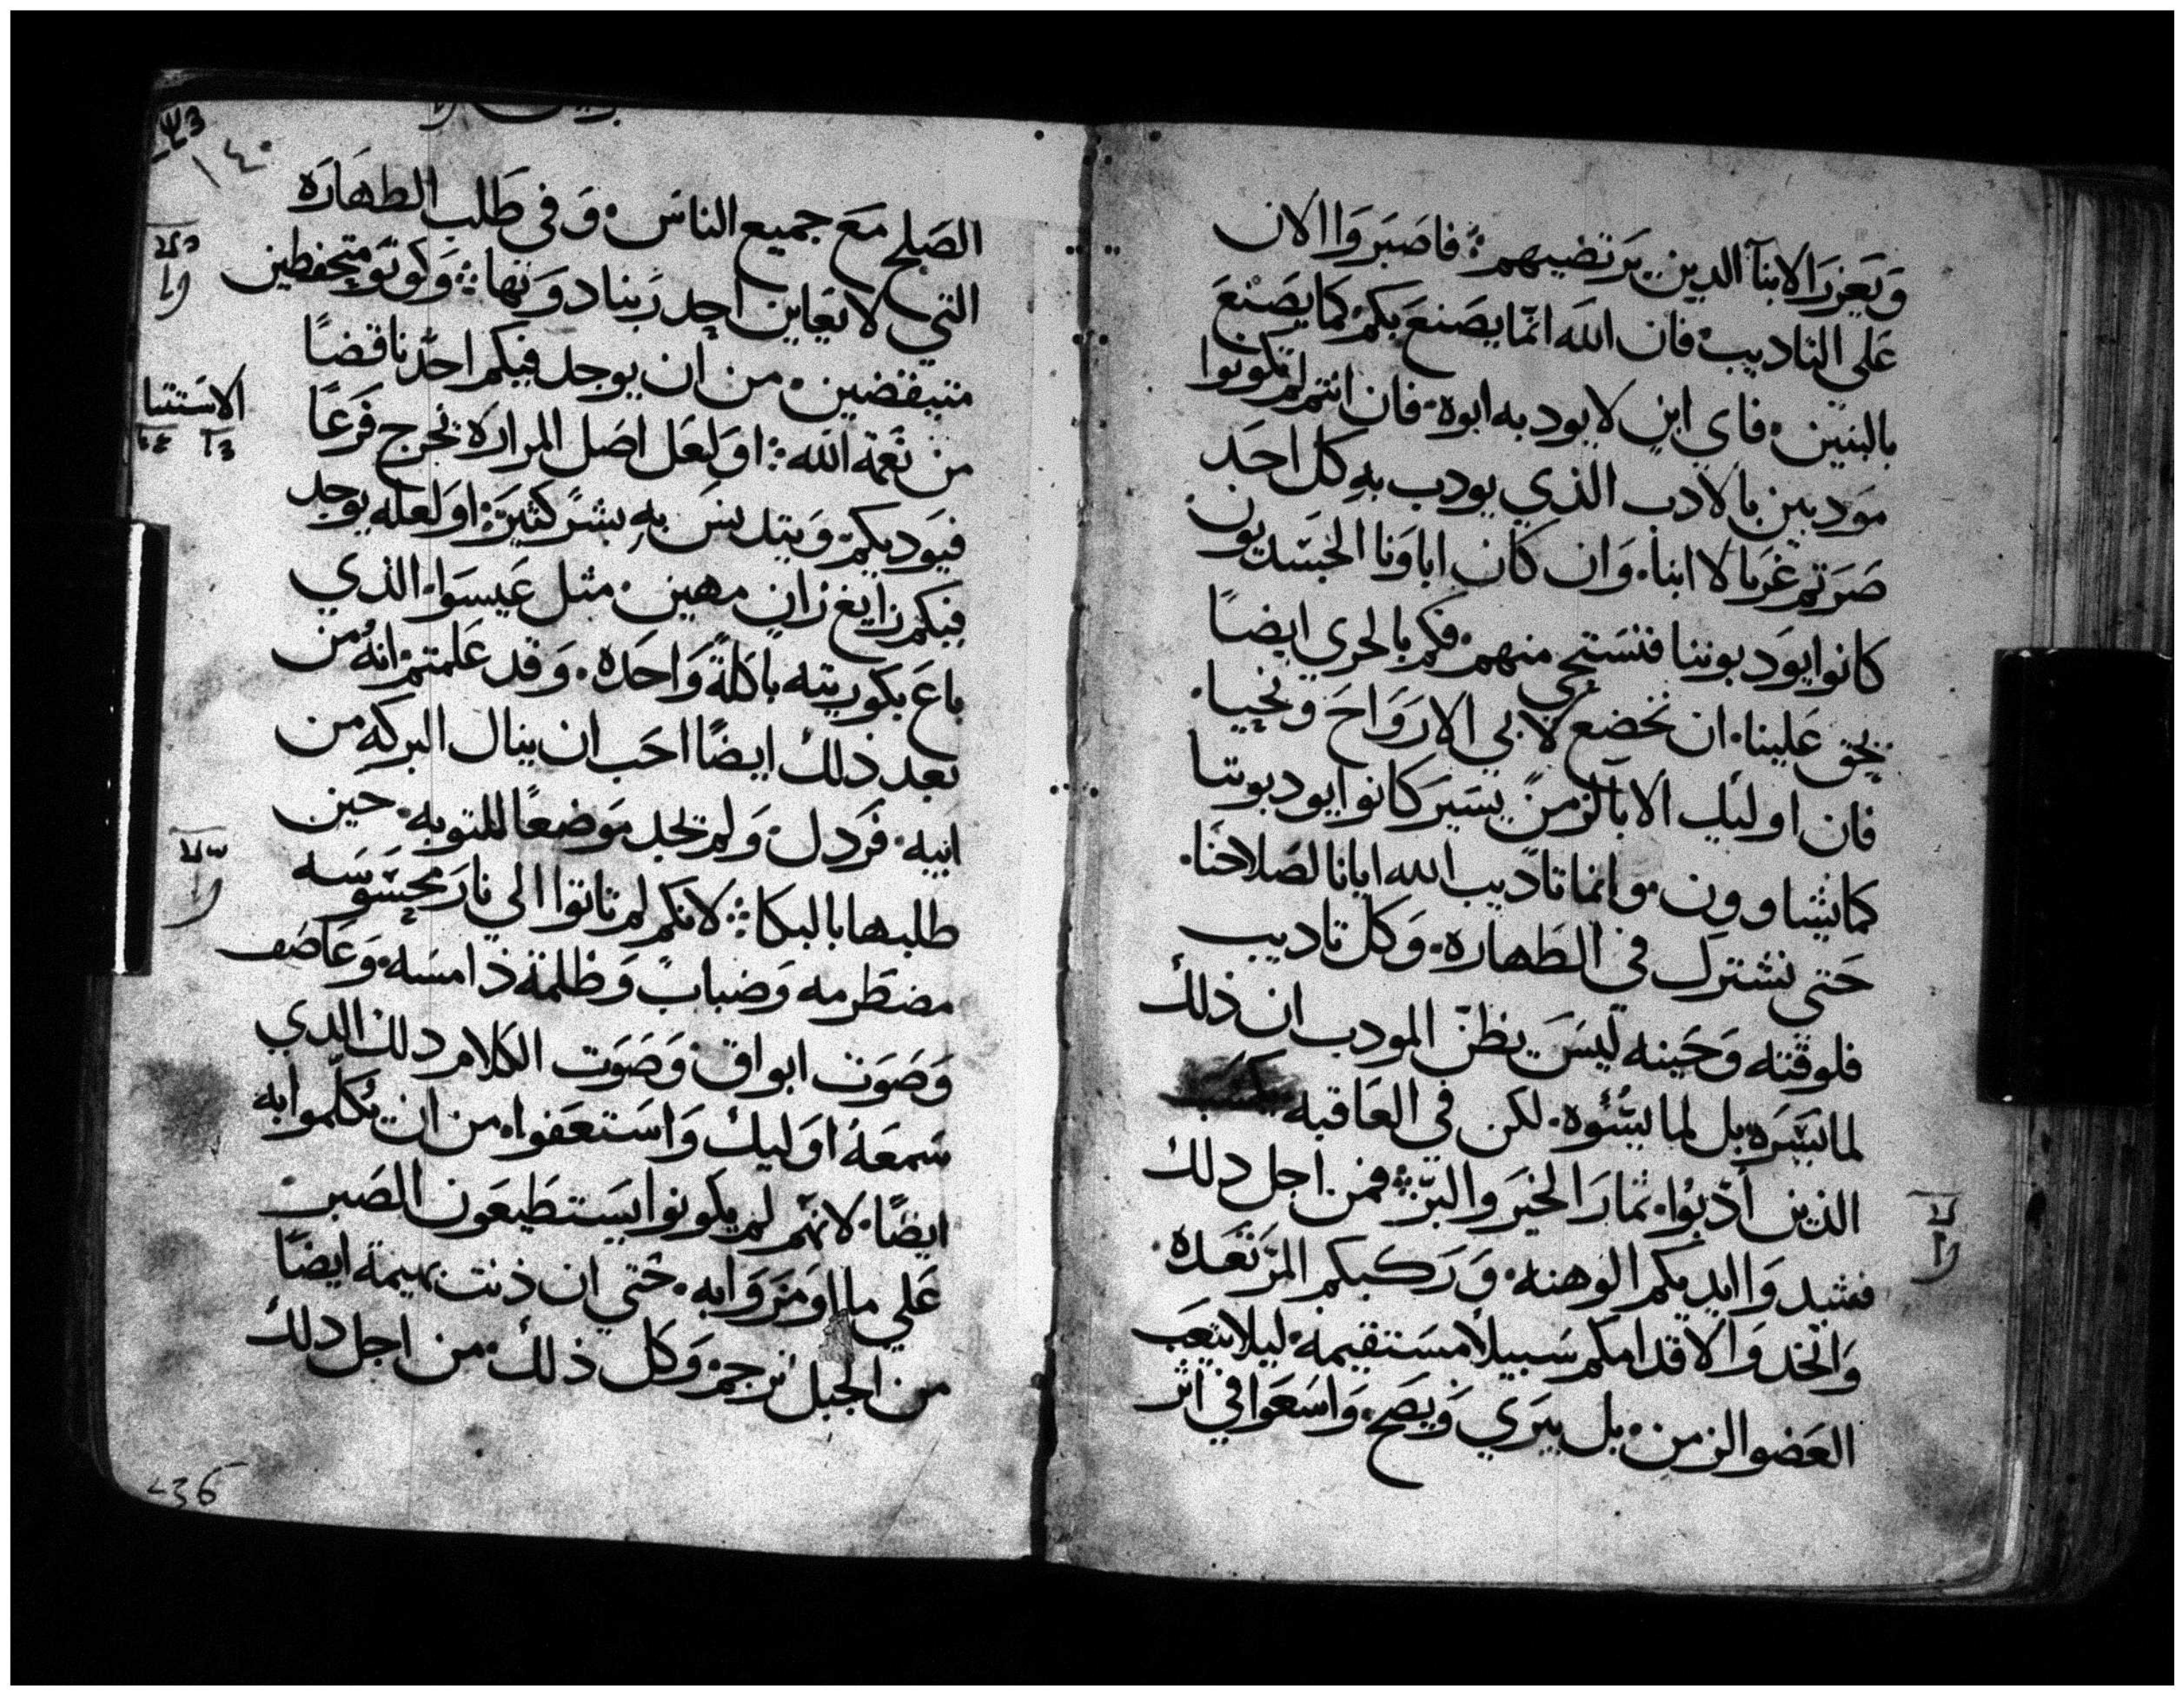 وَيَعزرَ الابنآ الدين يَرتضيهم ܀ فاصَبَروَا الان
عَلى التاديب فان اللَه انمّا يصَنعَ بكم كما يصَنعَ
بالبنين ۰ فاي ابن لا يودبه ابوه ۰ فان انتم لم تكونوا
مودبين بالادب الذي يودب بهِ كل احَد
صَرَتم غرَبا لا ابنا ۰ وَان كان اباوَنا الجَسَديون
كانوا يوَدبوننا فنسَتحي منهم ۰ فكم بالحري ايضاً
يحق عَلينا ۰ ان نخضع لابي الاروَاحَ ونحيا ۰
فان اوليك الابآ لزمنٍ يسَيرَ كانوا يودبوننا
كما يشاوون ۰ وانما تاديب الله ايانا لصَلاحنَا ۰
حَتي نشترك في الطَهاره ۰ وَكل تاديب
فلوقته وَحَينه ليسَ يظنّ المودب ان ذلك
لما يسَرَه بل لما يسُئوه ۰ لكن في العَاقبه
الذين أدّبوُا ۰ ثمارَ الخيَرَ والبرّ ܀ فمن اجل دلك
فشيدوَا ايديكم الوهنه ۰ وَرَكبكم المرَتعَده ۰
وَاتخدوَا لاقدامكم سَبيلاً مسَتقيمه ۰ ليلا يتعَب
العَضو الزمن ۰ بل يبَري وَيصَح ۰ وَاسَعَوا في اثر
١٤٠
الصَلح مَعَ جميع الناسَ ۰ وَفي طَلب الطهارَه
التي لا يعَاين احد رَبنا دوَنها ܀ وَكونوَ متحفظين
متيقضين ۰ من ان يوجد فيكم احدٌ ناقضاً
من نعَمة الله ܀ اوَ لعَل اصَل المرارَه تخرج فَرَعًا
فيوَديكم وَيتدنسَ بهِ بشرٌ كثيرَ ܀ اوَ لعَله يوجد
فيكم زايغ زانٍ مهين ۰ مثل عَيسَوا ۰ الذي
باعَ بكوريته باكلةٍ وَاحَده ۰ وَقد عَلمتم انهُ من
بعَد ذلك ايضًا احَب ان ينال البركه من
ابيه ۰ فرَدل ۰ وَلم تجد موَضعًا للتوبه ۰ حين
طلبها بالبكا ܀ لانكم لم تاتوا الي نارَ محسَوسَه
مضطَرمه وَضبابٌ وَظلمة ذامسَه ۰ وَعَاصَف
وَصَوَت ابواق ۰ وَصَوت الكلام دلك الدي
سَمعَهُ اوَليك وَاسَتعَفوا ۰ من ان يكلموا به
ايضًا ۰ لانهم لم يكونوا يسَتطيعَون الصَبر
عَلي ما اوَمرَوَا به ۰ حَتي ان ذنت بهيمة ايضًا
من الجبل ترجم ۰ وَكل ذلك ۰ من اجل دلك
الاسَتثنا
236